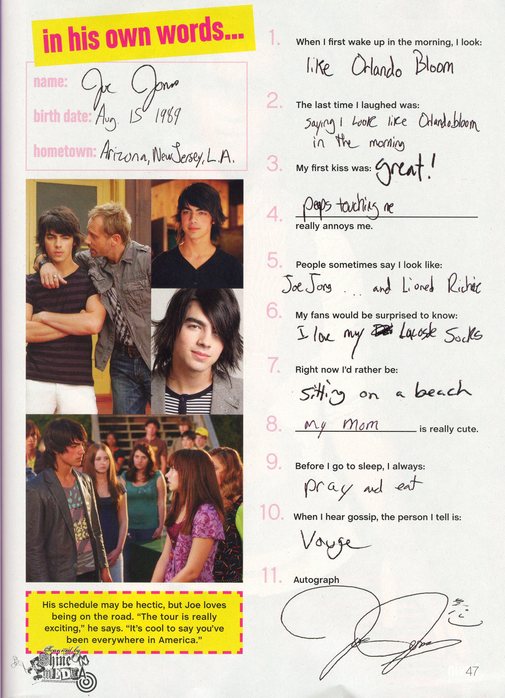 in his own words...
name: Joe Jonas
birth date: Aug 15 1989
hometown: Arizona, New Jersey, L.A.
His schedule may be hectic, but Joe loves
being on the road. "The tour is really
exciting," he says. "It's cool to say you've
been everywhere in America."
Shine
MEDIA
1. When I first wake up in the morning, I look:
like Orlando Bloom
2. The last time I laughed was:
saying I look like Orlando bloom
in the morning
3. My first kiss was: great!
4. peops touching me
really annoys me.
5. People sometimes say I look like:
Joe Jonas ... and Lionel Richie
6. My fans would be surprised to know:
I love my Lacoste Socks
7. Right now I'd rather be:
sitting on a beach
8. my mom is really cute.
9. Before I go to sleep, I always:
pray and eat
10. When I hear gossip, the person I tell is:
11. Autograph
47